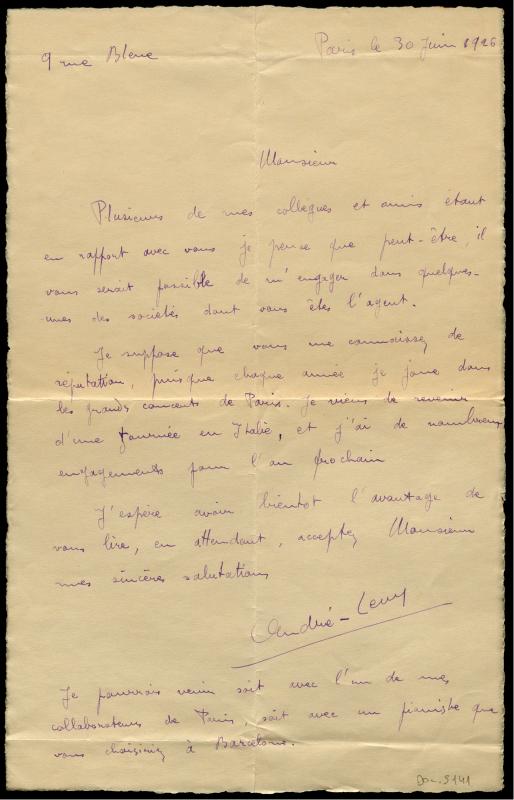 9 rue Bleue
Paris le 30 Juin 1926
Monsieur
Plusieurs de mes collègues et amis étant
en rapport avec vous je pense que peut-être, il
vous serait possible de m'engager dans quelques-
unes des sociétés dont vous êtes l'agent.
Je suppose que vous me connaissez de
réputation, puisque chaque année je joue dans
les grands concerts de Paris. Je viens de revenir
d'une tournée en Italie, et j'ai de nombreux
engagements pour l'an prochain
J'espère avoir bientot l'avantage de
vous lire, en attendant, acceptez Monsieur
mes sincères salutations
André-Levy
Je pourrais venir soit avec l'un de mes
collaborateurs de Paris, soit avec un pianiste que
vous choisiriez à Barcelone.
Doc. 9141